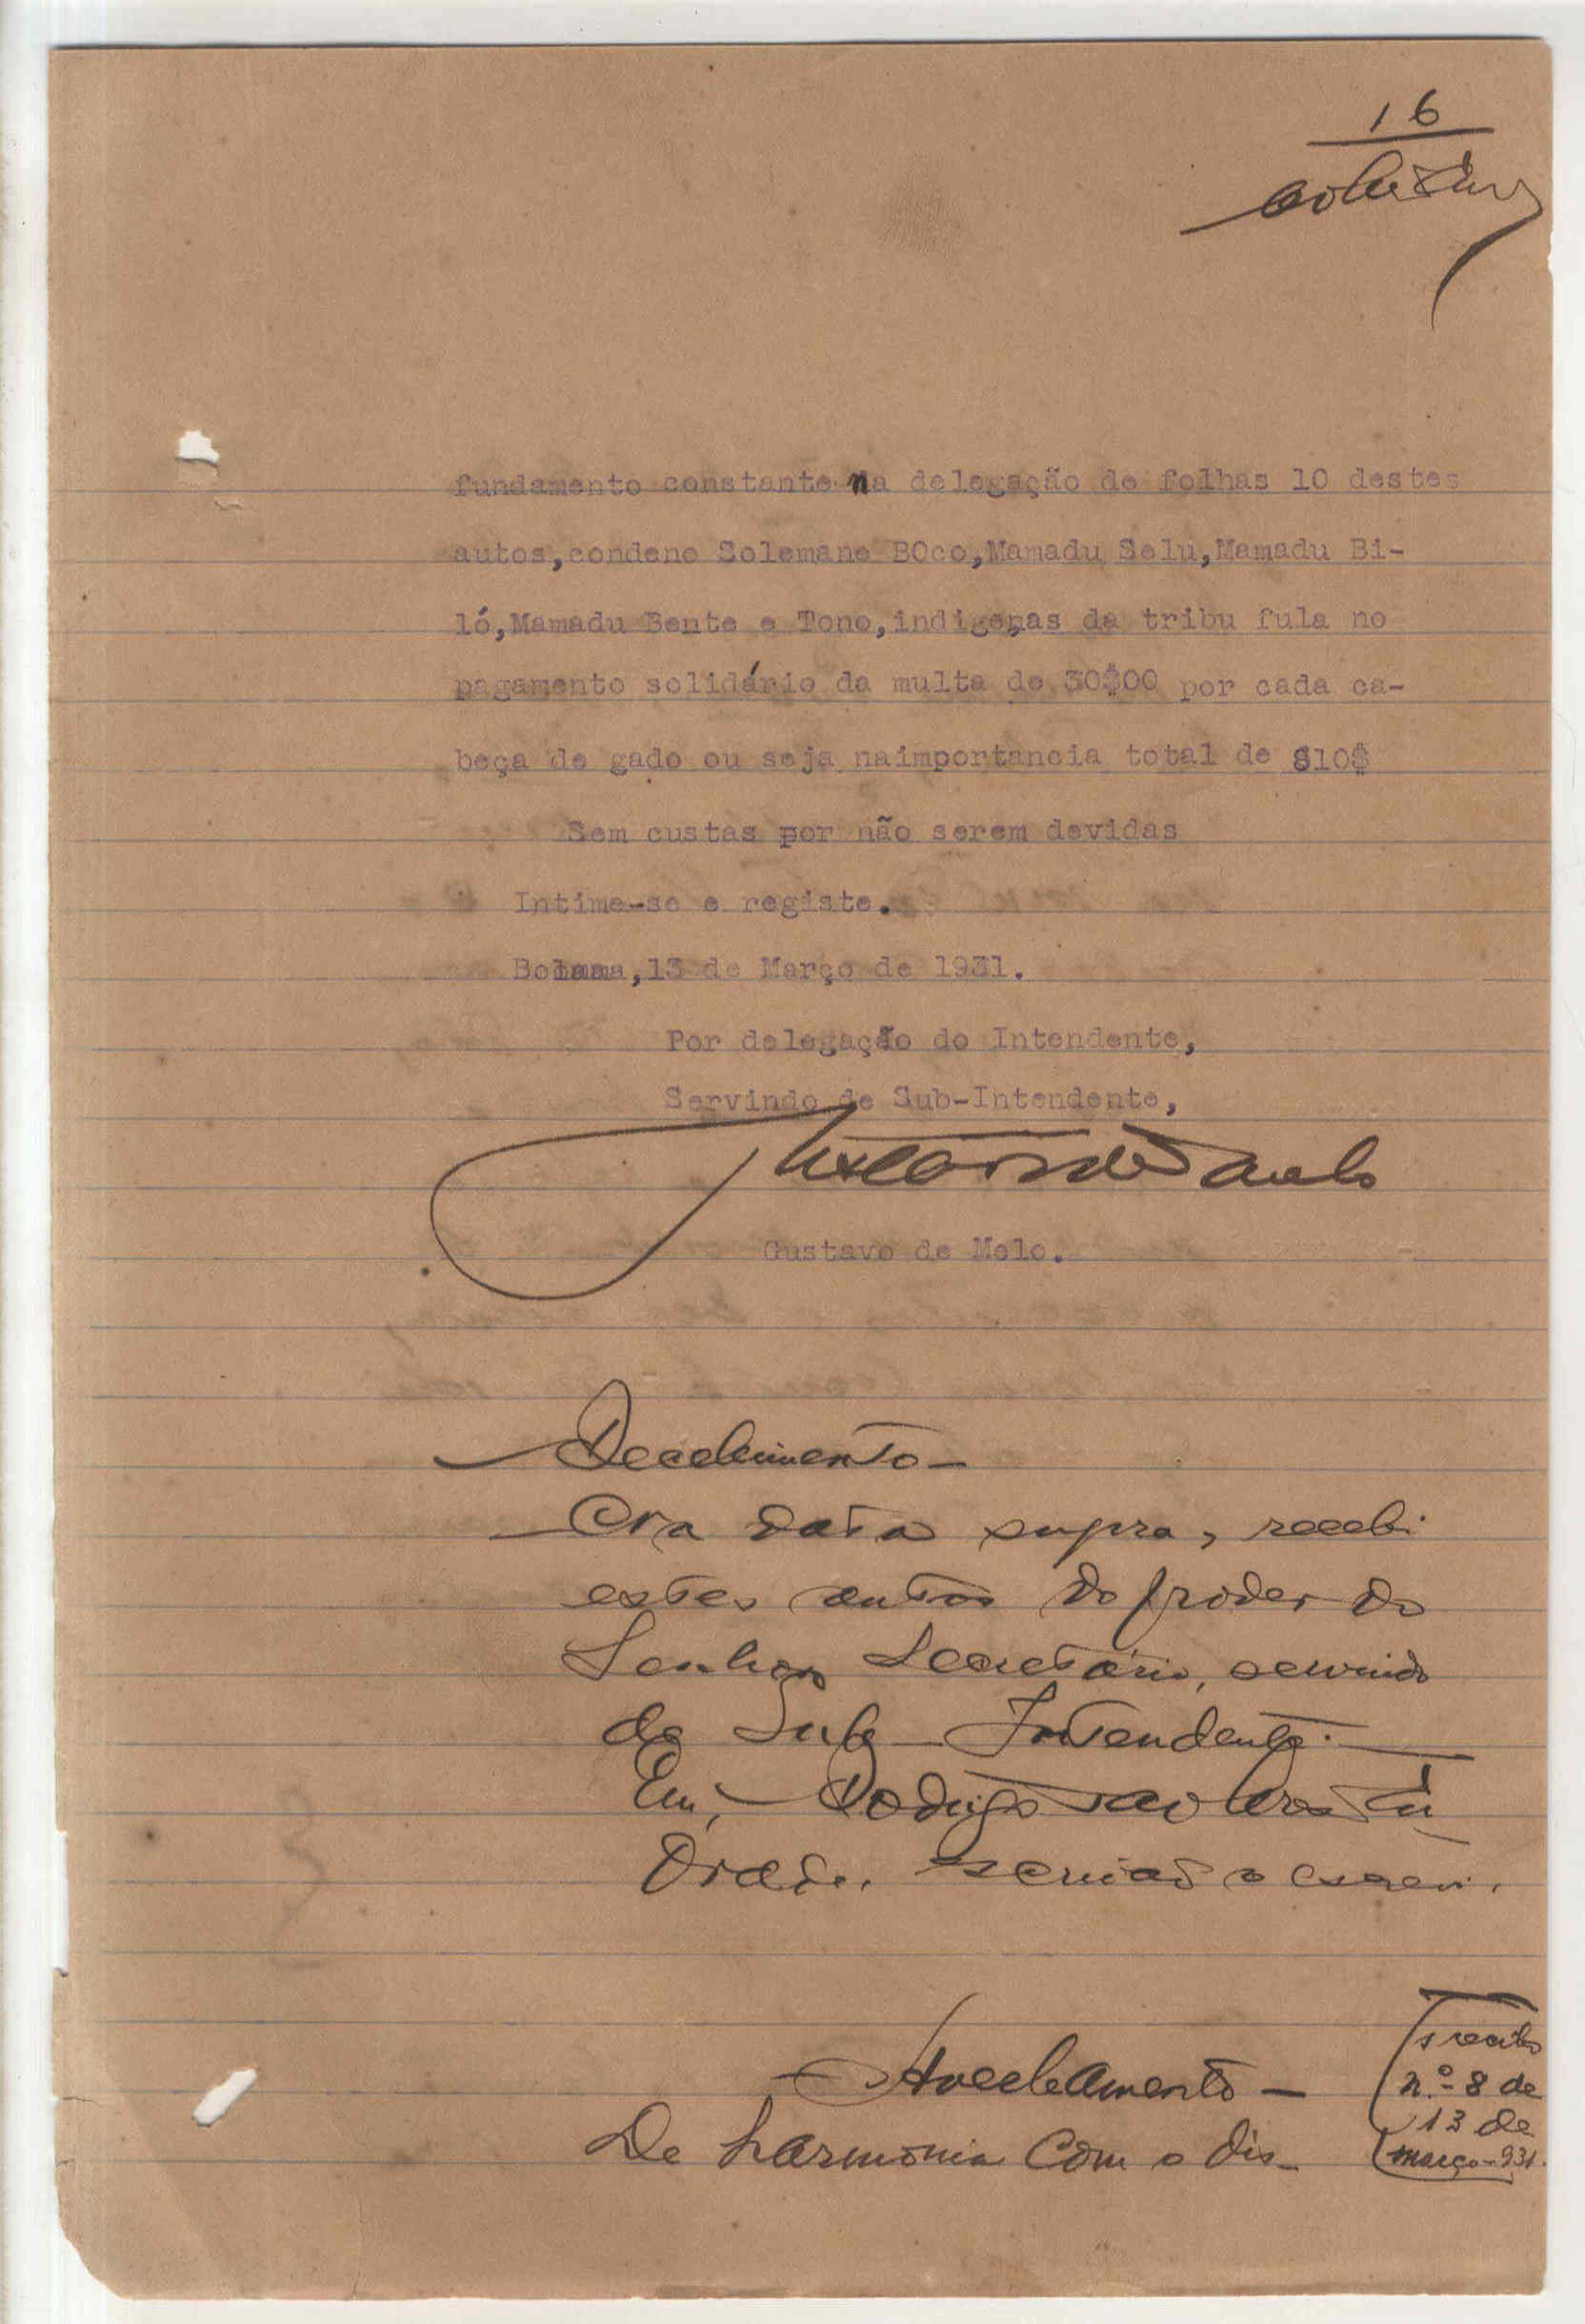 16
fundamento constante na delegação de folhas 10 destes
autos,condeno Solemane BOco,Mamadu Selu,Mamadu Bi-
ló,Mamadu Bente e Tono,indigenas da tribu fula no
pagamento solidário da multa de 30$00 por cada ca-
beça de gado ou seja naimportancia total de 810$
Sem custas por não serem devidas
Intime-se e registe.
Bolama,13 de Março de 1931.
Por delegação do Intendente,
Servindo de Sub-Intendente,
Gustavo de Melo.
Recebimento-
Na data supra, recebi
estes autos do poder do
Senhor Secretário, servindo
de Sub-Intendente.
Eu, Rodrigo
escrivão o escrevi.
recibo
n.º 8 de
13 de
março-931.
De harmonia com o dis-